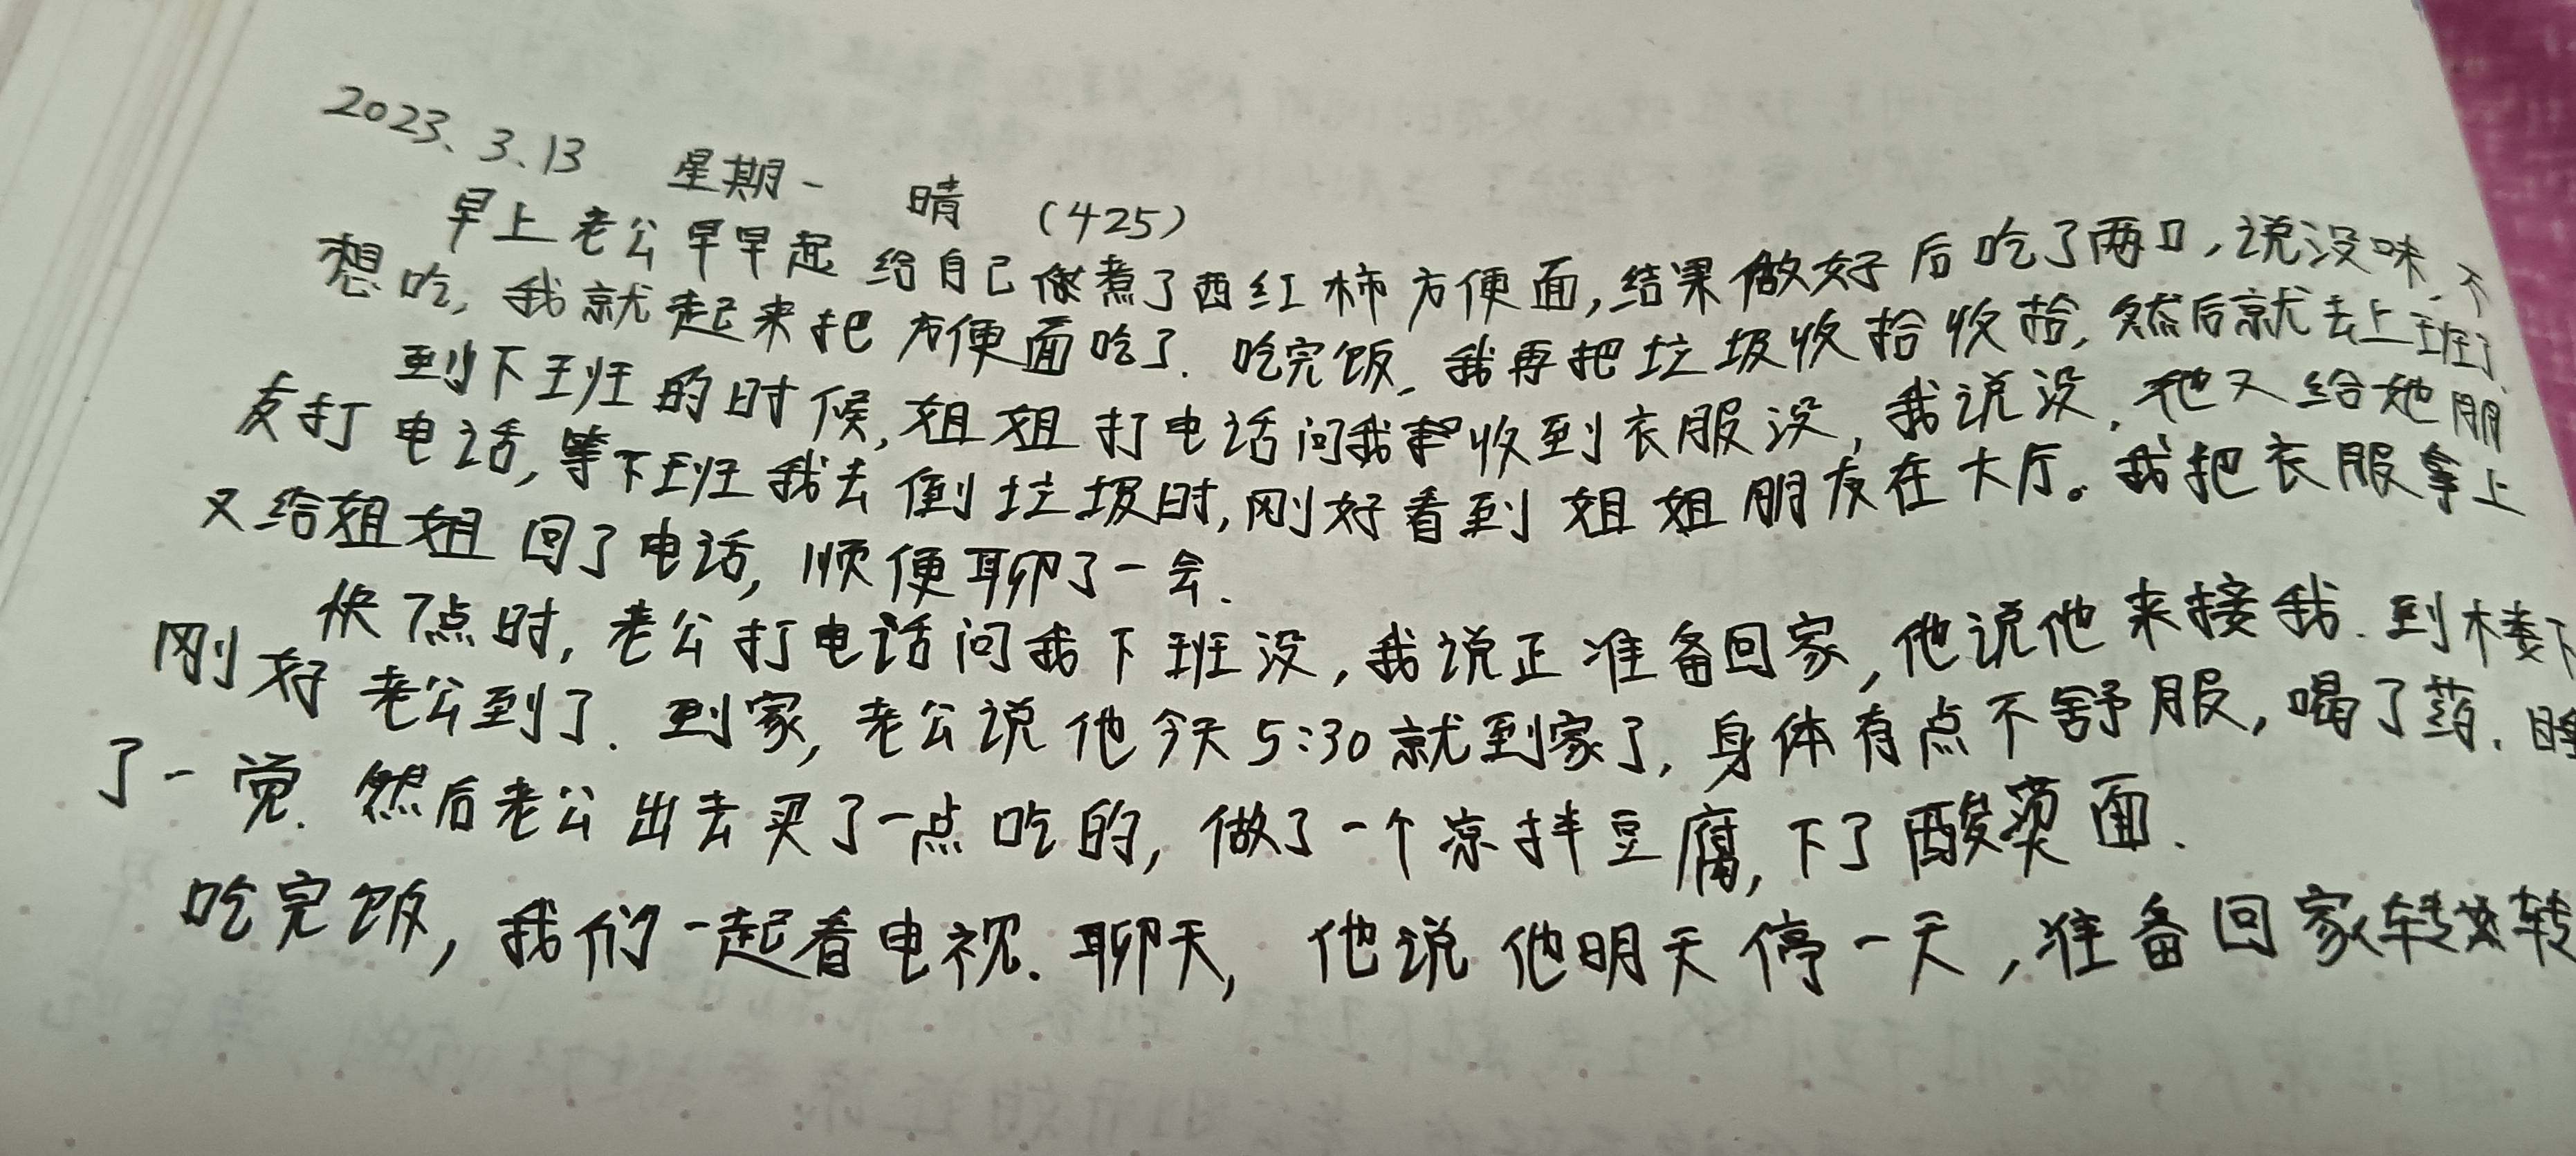 2023、3、13 星期一 晴 (425)
早上老公早早起给自己煮了西红柿方便面,结果做好后吃了两口,说没味,不
想吃,我就起来把方便面吃了.吃完饭,我再把垃圾收拾收拾,然后就去上班了.
到下班的时候,姐姐打电话问我收到衣服没,我说没,他又给她朋
友打电话,等下班我去倒垃圾时,刚好看到姐姐朋友在大厅。我把衣服拿上
又给姐姐回了电话,顺便聊了一会.
快7点时,老公打电话问我下班没,我说正准备回家,他说他来接我.到楼下
刚好老公到了.到家,老公说他今天5:30就到家了,身体有点不舒服,喝了药.睡
了一觉.然后老公出去买了一点吃的,做了一个凉拌豆腐,下了酸菜面.
吃完饭,我们一起看电视.聊天,他说他明天停一天,准备回家转转